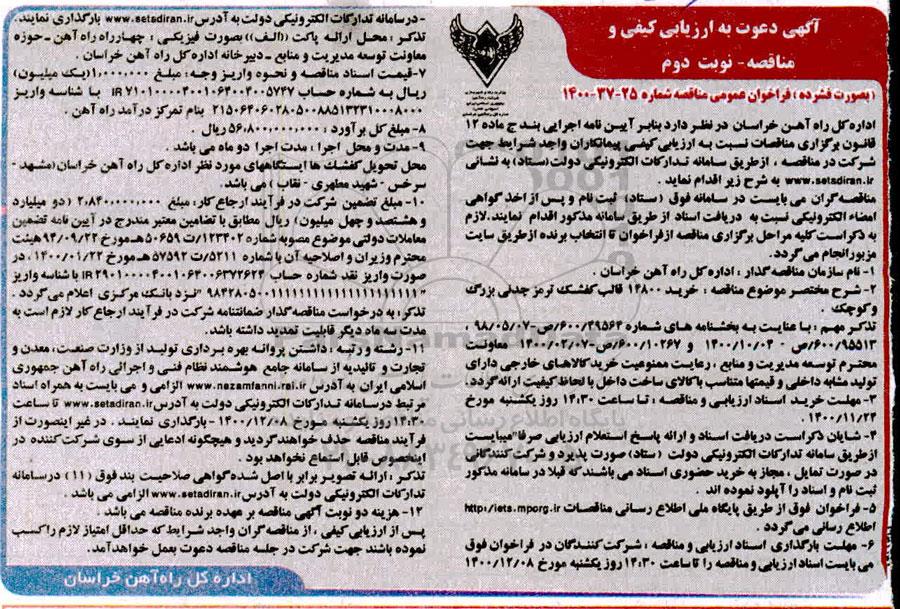 آگهی دعوت به ارزیابی کیفی و
مناقصه - نوبت دوم
(بصورت فشرده) فراخوان عمومی مناقصه شماره ۲۵-۳۷-۱۴۰۰
اداره کل راه آهن خراسان در نظر دارد بنابر آیین نامه اجرایی بند ج ماده ۱۲
قانون برگزاری مناقصات نسبت به ارزیابی کیفی پیمانکاران واجد شرایط جهت
شرکت در مناقصه ، ازطریق سامانه تدارکات الکترونیکی دولت(ستاد) به نشانی
www.setadiran.ir به شرح زیر اقدام نماید .
مناقصه گران می بایست در سامانه فوق (ستاد) ثبت نام و پس از اخذ گواهی
امضاء الکترونیکی نسبت به دریافت اسناد از طریق سامانه مذکور اقدام نمایند.لازم
به ذکراست کلیه مراحل برگزاری مناقصه ازفراخوان تا انتخاب برنده ازطریق سایت
مزبور انجام می گردد.
۱- نام سازمان مناقصه گذار : اداره کل راه آهن خراسان .
۲-شرح مختصر موضوع مناقصه : خرید ۱۴۸۰۰ قالب کفشک ترمز چدنی بزرگ
وکوچک .
تذکر مهم : با عنایت به بخشنامه های شماره ۶۰۰/۲۹۵۶۴/ص-۹۸/۰۵/۰۷ ،
۶۰۰/۹۵۵۱۳/ص - ۱۴۰۰/۱۰/۰۴ و ۶۰۰/۱۰۲۶۷/ص-۱۴۰۰/۰۲/۰۷ معاونت
محترم توسعه مدیریت و منابع ، رعایت ممنوعیت خرید کالاهای خارجی دارای
تولید مشابه داخلی و قیمتها متناسب با کالای ساخت داخل با لحاظ کیفیت ارائه گردد.
۳-مهلت خرید اسناد ارزیابی و مناقصه : تا ساعت ۱۴:۳۰ روز یکشنبه مورخ
۱۴۰۰/۱۱/۲۴
۴- شایان ذکر است دریافت اسناد و ارائه پاسخ استعلام ارزیابی صرفا"میبایست
ازطریق سامانه تدارکات الکترونیکی دولت (ستاد) صورت پذیرد و شرکت کنندگانی
در صورت تمایل ، مجاز به خرید حضوری اسناد می باشند که قبلا در سامانه مذکور
ثبت نام و اسناد را آپلود نموده اند .
۵- فراخوان فوق از طریق پایگاه ملی اطلاع رسانی مناقصات http:/iets.mporg.ir
اطلاع رسانی می گردد .
۶- مهلت بارگذاری اسناد ارزیابی و مناقصه : شرکت کنندگان در فراخوان فوق
می بایست اسناد ارزیابی و مناقصه را تا ساعت ۱۴:۳۰ روز یکشنبه مورخ ۱۴۰۰/۱۲/۰۸
-درسامانه تدارکات الکترونیکی دولت به آدرس www.setadiran.ir بارگذاری نمایند.
تذکر : محل ارائه پاکت ((الف)) بصورت فیزیکی : چهارراه راه آهن -حوزه
معاونت توسعه مدیریت و منابع -دبیرخانه اداره کل راه آهن خراسان .
۷-قیمت اسناد مناقصه و نحوه واریز وجه: مبلغ ۱،۰۰۰،۰۰۰(یک میلیون)
ریال به شماره حساب IR ۷۱۰۱۰۰۰۰۴۰۰۱۰۶۴۰۰۴۰۰۵۷۴۷ با شناسه واریز
۲۱۵۰۶۴۰۶۰۲۸۰۵۰۰۸۸۵۱۳۲۳۱۰۰۸۰۰۰ بنام تمرکز درآمد راه آهن .
۸- مبلغ کل برآورد : ۵۶،۸۰۰،۰۰۰،۰۰۰ ریال .
۹- مدت و محل اجرا : مدت اجرا دو ماه می باشد .
محل تحویل کفشک ها ایستگاههای مورد نظر اداره کل راه آهن خراسان(مشهد -
سرخس - شهید مطهری - نقاب ) می باشد .
۱۰- مبلغ تضمین شرکت در فرآیند ارجاع کار، مبلغ ۲،۸۴۰،۰۰۰،۰۰۰ (دو میلیارد
و هشتصد و چهل میلیون) ریال مطابق با تضامین معتبر مندرج در آیین نامه تضمین
معاملات دولتی موضوع مصوبه شماره ۱۲۳۴۰۲/ت ۵۰۶۵۹ هـ مورخ ۹۴/۰۹/۲۲ هیئت
محترم وزیران و اصلاحیه آن با شماره ۵۲۱۱/ت ۵۷۵۹۲ هـ مورخ ۱۴۰۰/۰۱/۲۲ ، در
صورت واریز نقد شماره حساب IR ۲۹۰۱۰۰۰۰۴۰۰۱۰۶۴۰۰۶۳۷۲۶۲۴ با شناسه واریز
"۹۸۴۲۸۰۵۰۰۱۱۱۱۱۱۱۱۱۱۱۱۱۱۱۱۱۱۱۱" نزد بانک مرکزی اعلام می گردد .
تذکر: به درخواست مناقصه گذار ضمانتنامه شرکت در فرآیند ارجاع کار لازم است به
مدت سه ماه دیگر قابلیت تمدید داشته باشد.
۱۱- رشته و رتبه : داشتن پروانه بهره برداری تولید از وزارت صنعت، معدن و
تجارت و تائیدیه از سامانه جامع هوشمند نظام فنی و اجرائی راه آهن جمهوری
اسلامی ایران به آدرس www.nezamfanni.rai.ir الزامی و می بایست به همراه اسناد
مرتبط درسامانه تدارکات الکترونیکی دولت به آدرس www.setadiran.ir تا ساعت
۱۴:۳۰ روز یکشنبه مورخ ۱۴۰۰/۱۲/۰۸ - بارگذاری نمایند . در غیر اینصورت از
فرآیند مناقصه حذف خواهند گردید و هیچگونه ادعایی از سوی شرکت کننده در
اینخصوص قابل استماع نخواهد بود .
تذکر : ارائه تصویر برابر با اصل شده گواهی صلاحیت بند فوق (۱۱) درسامانه
تدارکات الکترونیکی دولت به آدرس www.setadiran.ir الزامی می باشد .
۱۲- هزینه دو نوبت آگهی مناقصه بر عهده برنده مناقصه می باشد .
پس از ارزیابی کیفی ، از مناقصه گران واجد شرایط که حداقل امتیاز لازم را کسب
نموده باشند جهت شرکت در جلسه مناقصه دعوت بعمل خواهد آمد.
اداره کل راه آهن خراسان